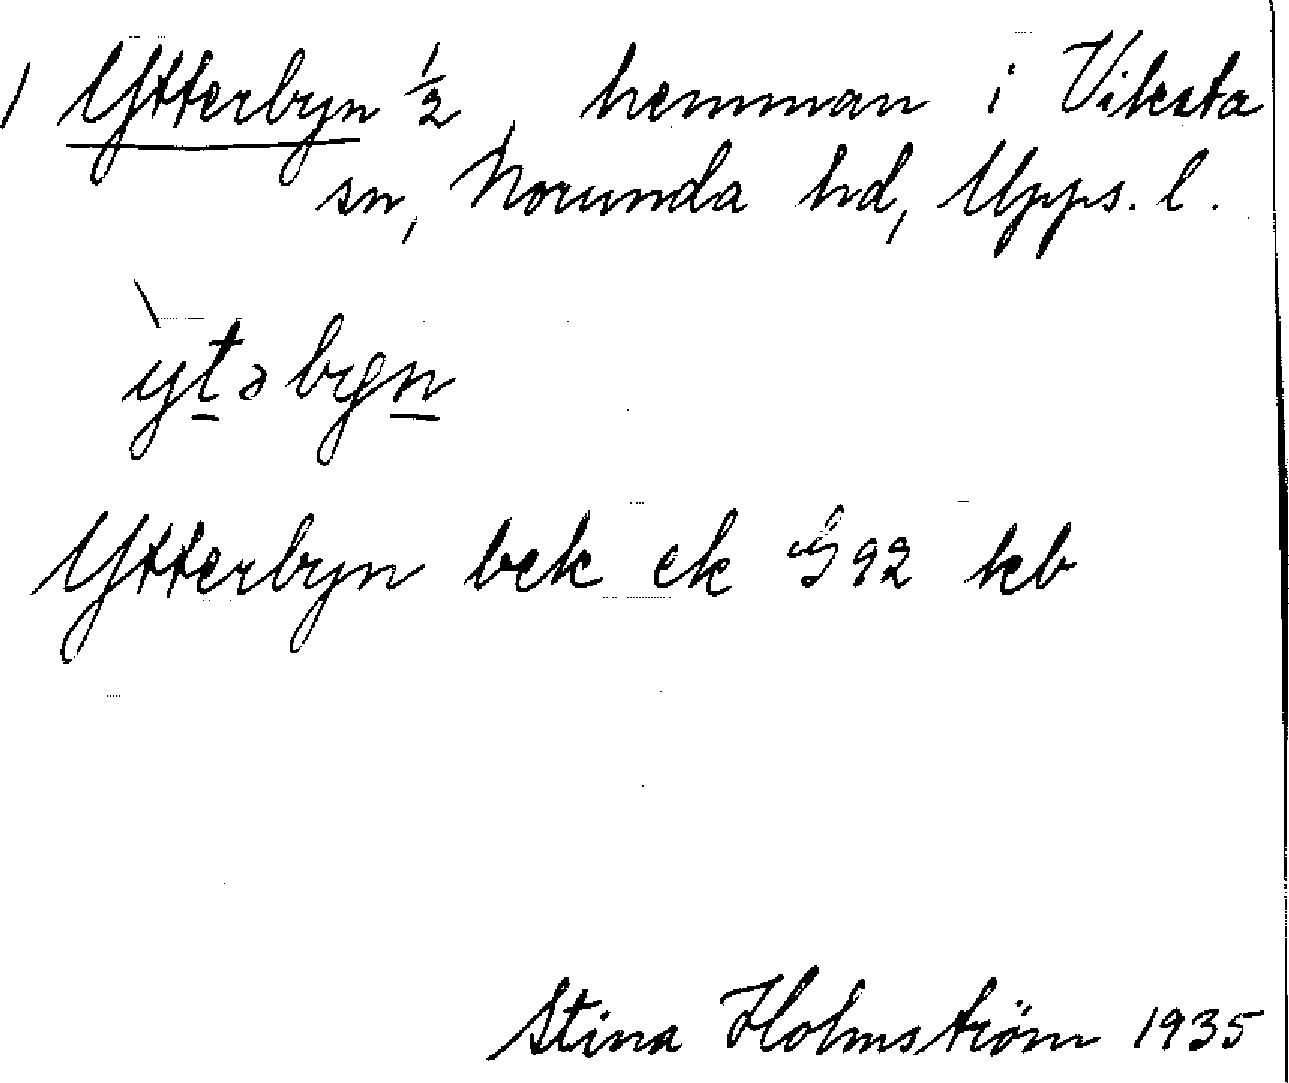 1 Ytterbyn 1/2, hemman i Viksta
sn, Norunda hd, Upps. l.
`ytəbyn
Ytterbyn bek ek G 92 kb
Stina Holmström 1935